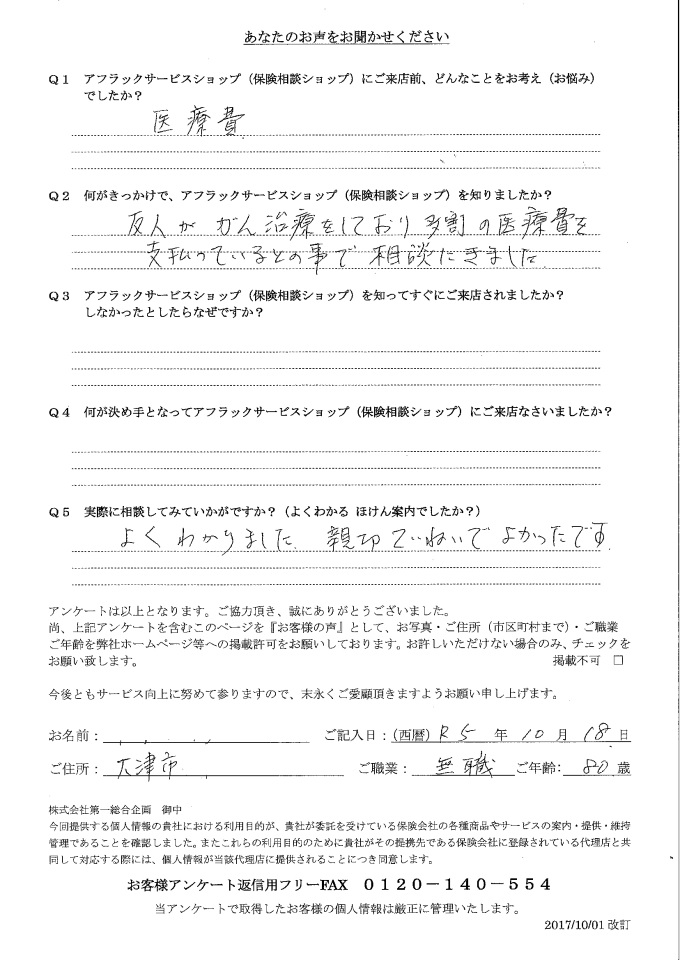 あなたのお声をお聞かせください
Q1 アフラックサービスショップ（保険相談ショップ）にご来店前、どんなことをお考え（お悩み）
でしたか？
医療費
Q2 何がきっかけで、アフラックサービスショップ（保険相談ショップ）を知りましたか？
友人ががん治療をしており多割の医療費を
支払っているとの事で相談にきました
Q3 アフラックサービスショップ（保険相談ショップ）を知ってすぐにご来店されましたか？
しなかったとしたらなぜですか？
Q4 何が決め手となってアフラックサービスショップ（保険相談ショップ）にご来店なさいましたか？
Q5 実際に相談してみていかがですか？（よくわかる ほけん案内でしたか？）
よくわかりました. 親切ていねいでよかったです
アンケートは以上となります。ご協力頂き、誠にありがとうございました。
尚、上記アンケートを含むこのページを『お客様の声』として、お写真・ご住所（市区町村まで）・ご職業
ご年齢を弊社ホームページ等への掲載許可をお願いしております。お許しいただけない場合のみ、チェックを
お願い致します。 掲載不可 □
今後ともサービス向上に努めて参りますので、末永くご愛顧頂きますようお願い申し上げます。
お名前： ご記入日：（西暦）R5 年 10 月 18 日
ご住所：大津市 ご職業：無職 ご年齢：80 歳
株式会社第一総合企画 御中
今回提供する個人情報の貴社における利用目的が、貴社が委託を受けている保険会社の各種商品やサービスの案内・提供・維持
管理であることを確認しました。またこれらの利用目的のために貴社がその提携先である保険会社に登録されている代理店と共
同して対応する際には、個人情報が当該代理店に提供されることにつき同意します。
お客様アンケート返信用フリーFAX 0120－140－554
当アンケートで取得したお客様の個人情報は厳正に管理いたします。
2017/10/01 改訂